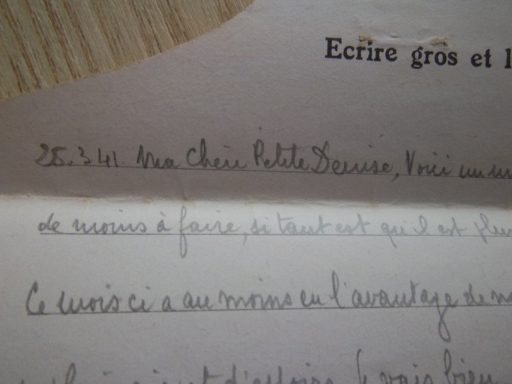 Ecrire gros et l
25.3.41. Ma Chère Petite Denise, Voici un m
de moins à faire, si tant est qu'il est plu
Ce mois ci a au moins eu l'avantage de n
d'affaires. Je vais bien